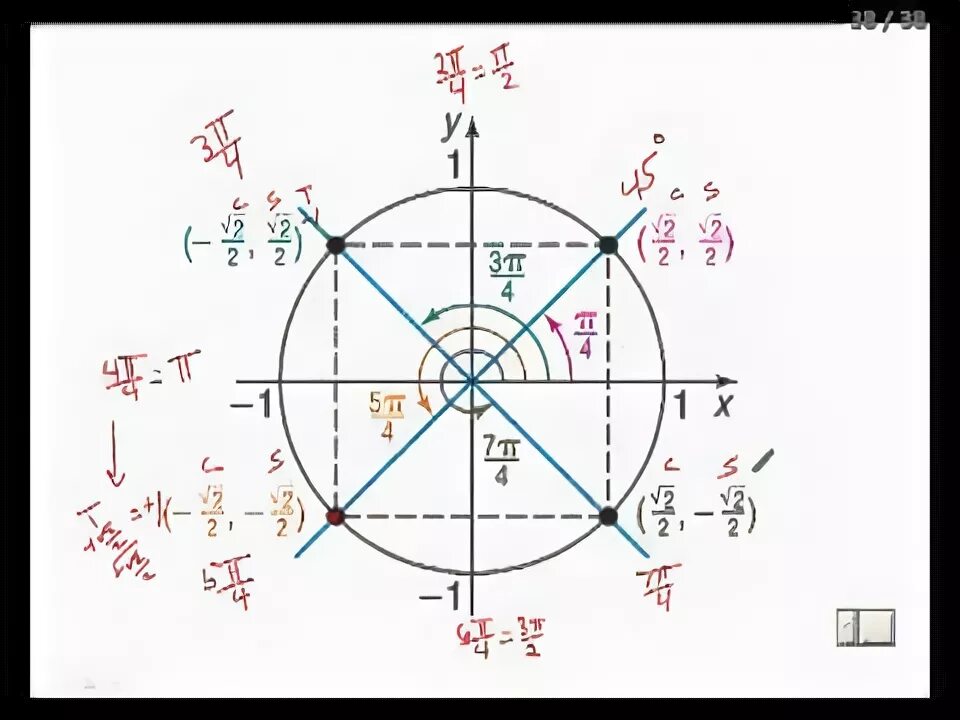 38 / 38
2π/4 = π/2
3π/4
y
1
45°
C S T
(-√2/2, √2/2)
C S
(√2/2, √2/2)
3π/4
π/4
4π/4 = π
-1
1
x
5π/4
7π/4
C S
T = +1 (-√2/2, -√2/2)
C S
(√2/2, -√2/2)
5π/4
7π/4
-1
6π/4 = 3π/2